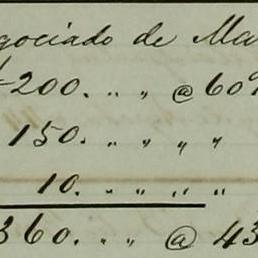 gociado de Ma
200. " " @ 60
150. " " " "
10. " " " "
360. " " @ 43